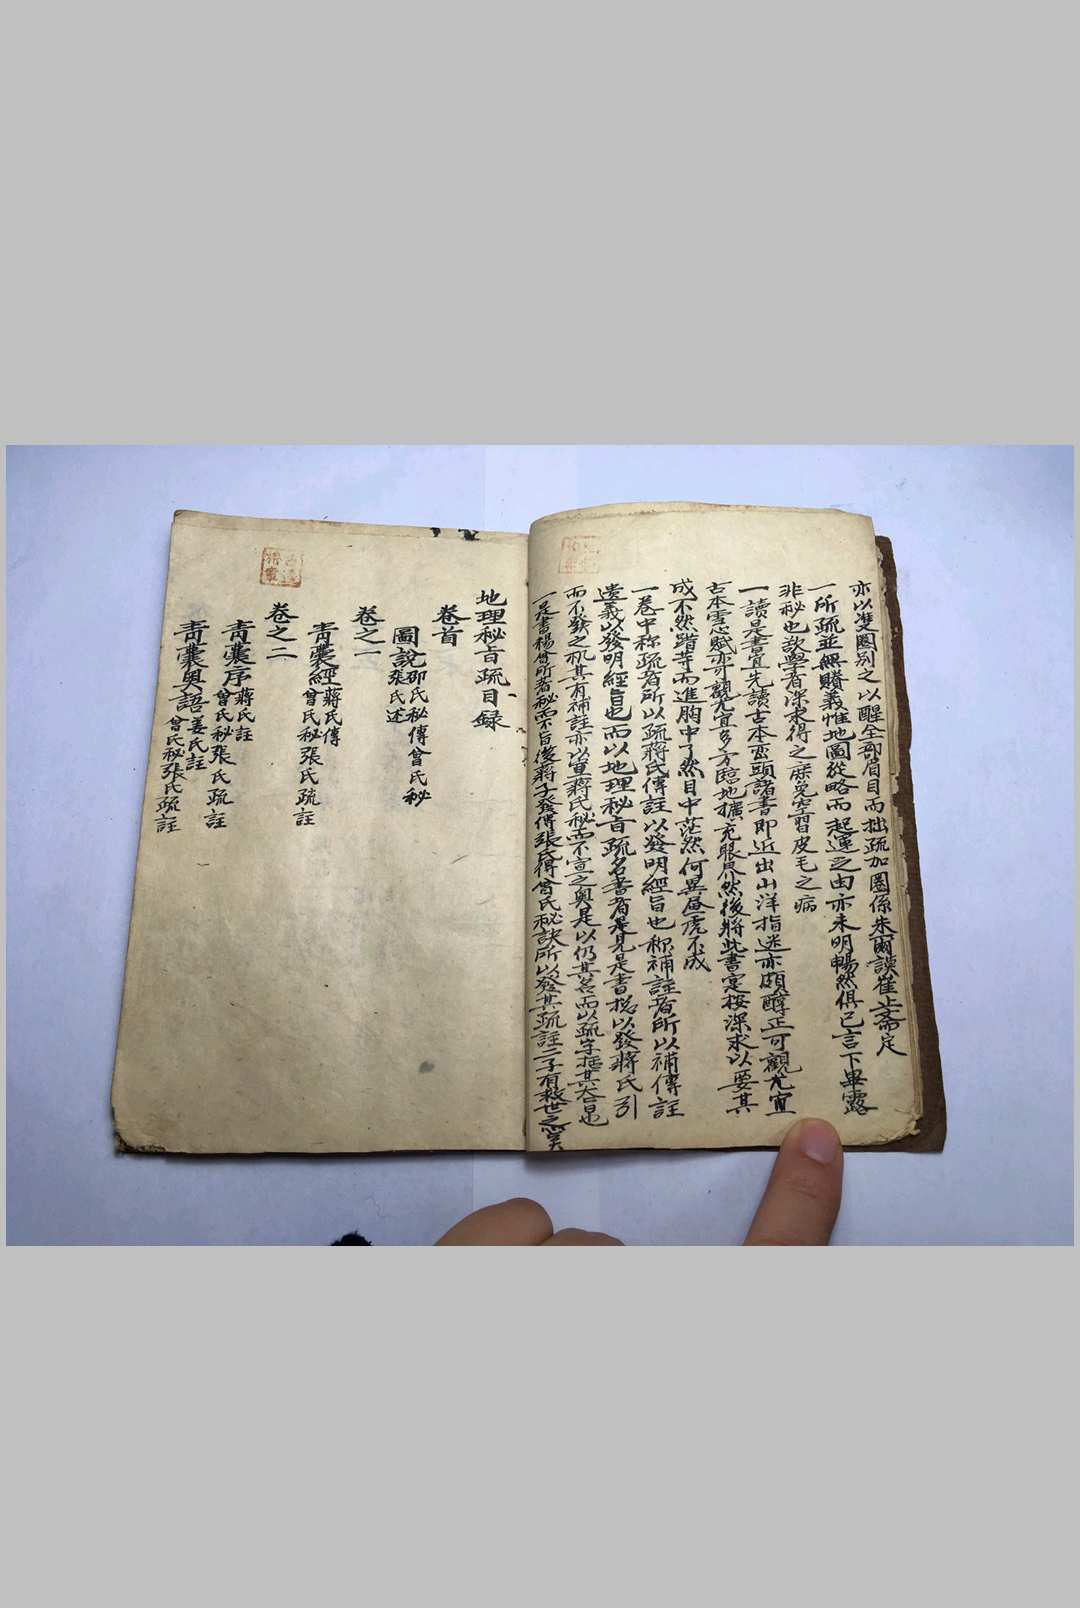 亦以雙圈別之以醒全部眉目而拙疏加圈係朱爾謨崔止齋定
一所疏並無賸義惟地圖從略而起運之由亦未明暢然俱已言下畢露
非秘也欲學者深求得之庶免空習皮毛之病
一讀是書宜先讀古本巒頭諸書即近出山洋指迷亦頗醇正可觀尤宜
古本雪心賦亦可觀尤宜多方臨地擴充眼界然後將此書定按深求以要其
成不然躐等而進胸中了然目中茫然何異畫虎不成
一卷中称疏者所以疏蔣氏傳註以發明經旨也称補註者所以補傳註
遺義以發明經旨也而以地理秘旨疏名書者是見是書揔以發蔣氏引
而不發之机其有補註亦以宣蔣氏秘而不宣之奧是以仍其名而以疏字括其大旨也
一是書楊曾所著秘而不旨後蔣子發傳張氏得曾氏秘訣所以發其疏註二子有救世之心矣
地理秘旨疏目録
卷首
圖說邵氏秘傳曾氏秘
張氏述
卷之一
青囊經蔣氏傳
曾氏秘張氏疏註
卷之二
青囊序蔣氏註
曾氏秘張氏疏註
青囊奧語姜氏註
曾氏秘張氏疏註